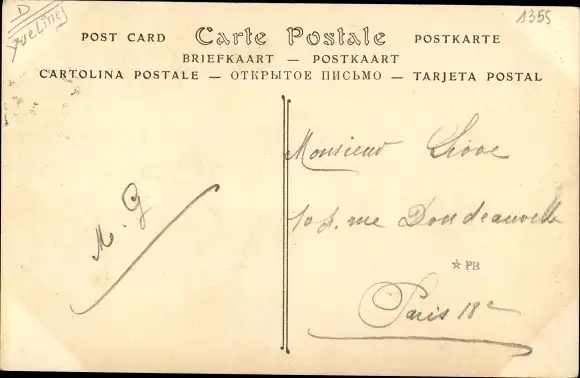 D
Yvelines
1355
POST CARD Carte Postale POSTKARTE
BRIEFKAART — POSTKAART
CARTOLINA POSTALE — ОТКРЫТОЕ ПИСЬМО — TARJETA POSTAL
M. G
Monsieur
rue Doudeauville
☆ PB
Paris 18e